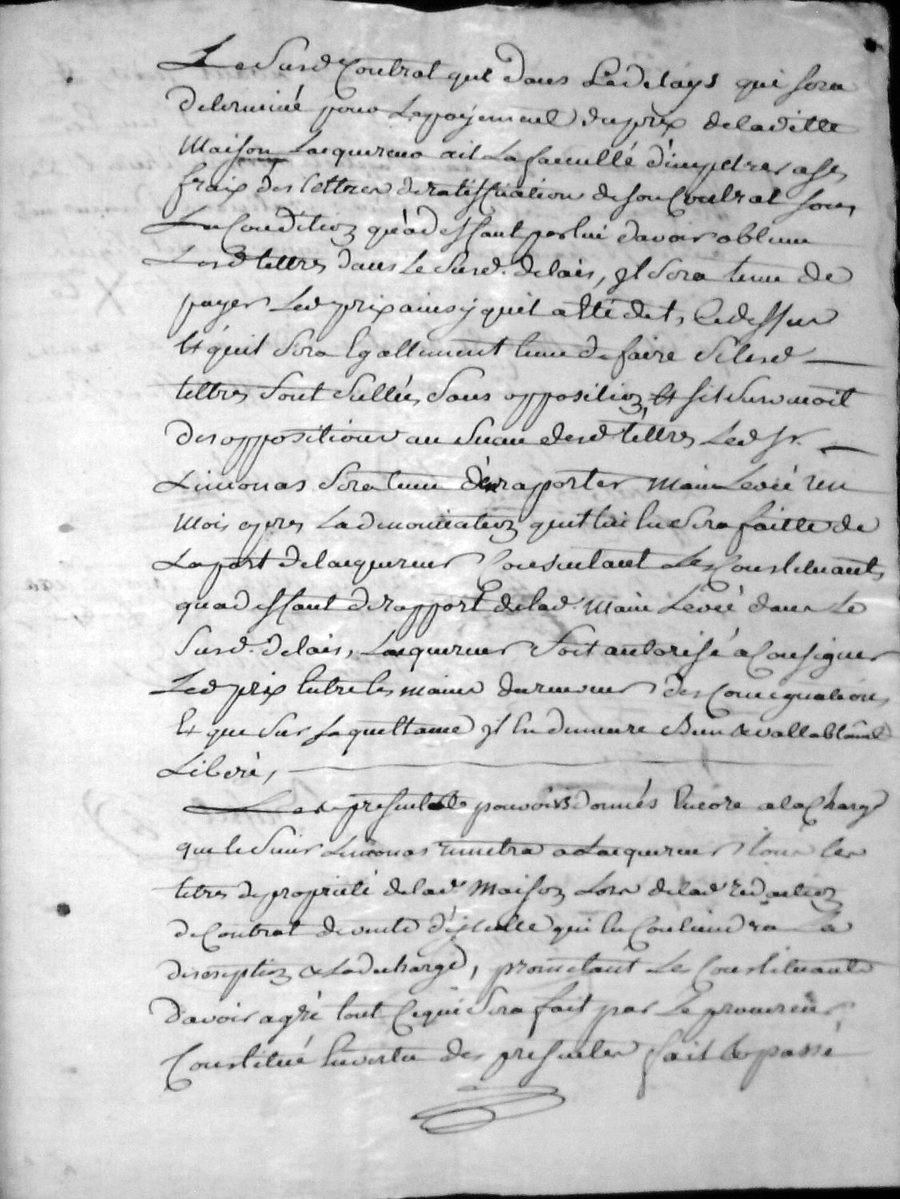 Le Susd Contrat que dans Le delays qui sera
determiné pour Le payement du prix de laditte
Maison Lacquereur ait La faculté d'impetrer a ses
fraix des lettres de ratiffication de son Contrat sous
La Condition qu'a deffaut par lui d'avoir obtenu
Lesd lettres dans Le Susd. delais, il Sera tenu de
payer Led prix ainsy quil a été dit, Cy dessus
Et quil Sera Egallement tenu de faire Si lesd
lettres Sont Sellées Sans opposition, Et sil Survenoit
des oppositions au Sceau desd lettres, Led Sr.
Limonas Sera tenu d'en raporter Main Levée un
Mois apres La denonciation quil lui En Sera faitte de
La part de lacquereur Consentant Les Constituants,
qua deffaut de rapport de lad. Main Levée dans Le
Susd. delais, Lacquereur Soit autorisé a Consigner
Led prix Entre les mains du receveur des Consignations
Et que Sur Sa quittance il En demeure Bien & vallablement
Libéré,
Les presents pouvoirs donnés Encore a la Charge
que le Sieur Limonas remettra a Lacquereur tous les
titres de propriété de lad. Maison Lors de lad redaction
de Contrat de vente d'icelle qui En Contiendra La
description & La decharge, promettant Les Constituants
d'avoir agréé tout Ce qui Sera fait par Le procureur
Constitué En vertu des presentes fait & passé